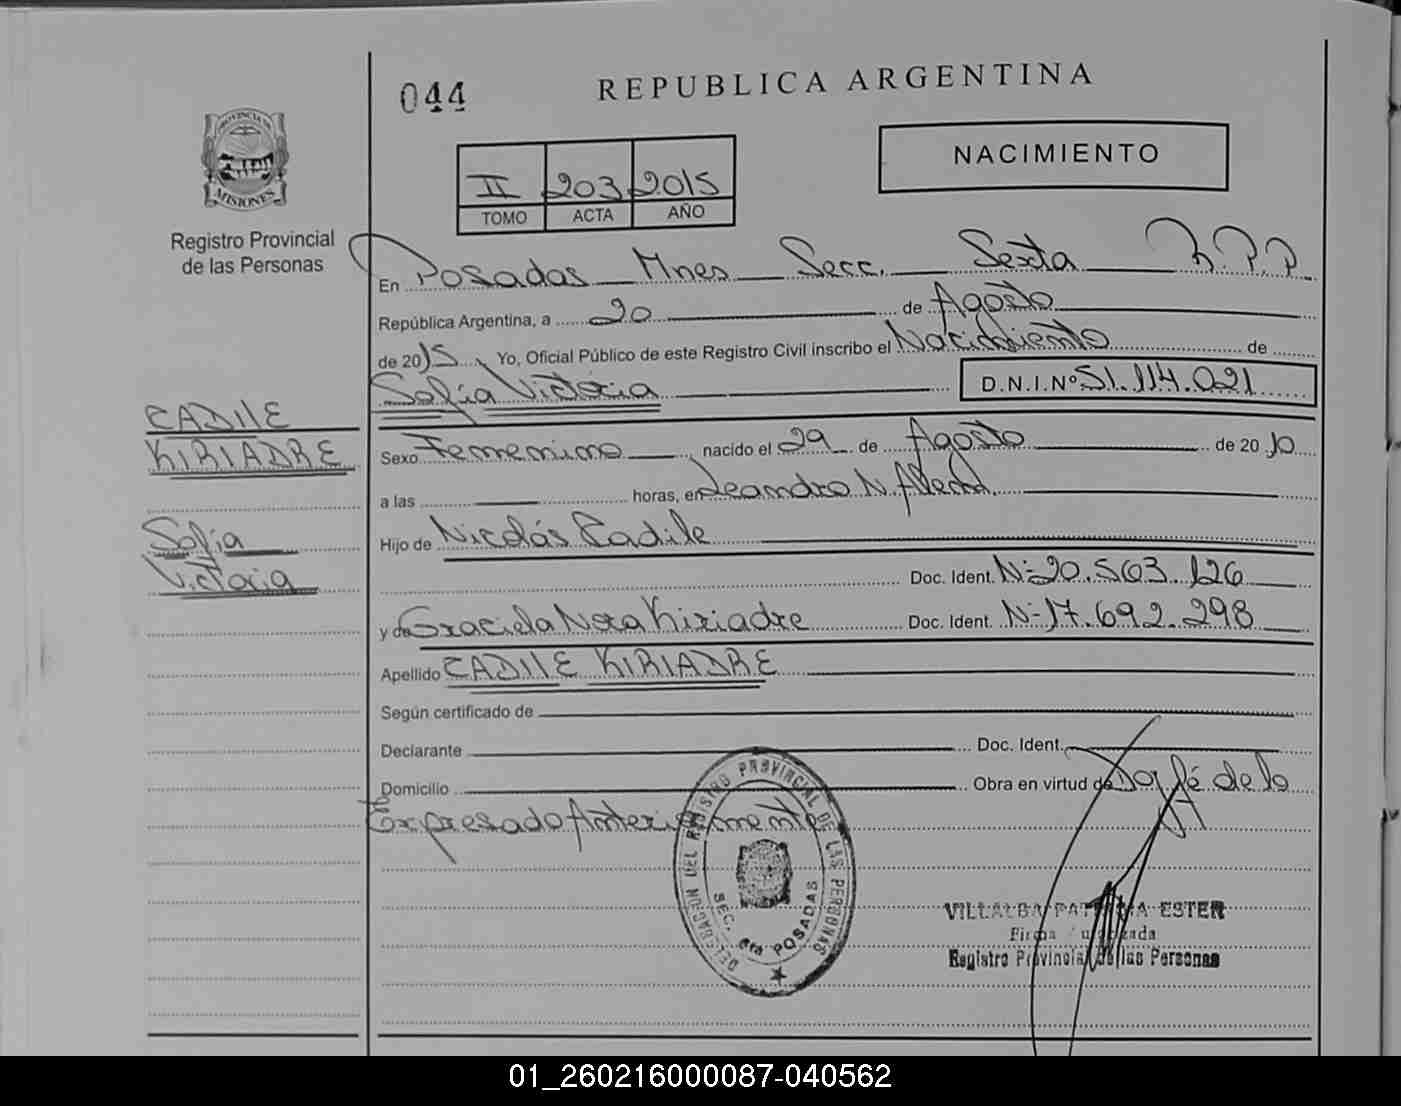 044
REPUBLICA ARGENTINA
PROVINCIA DE
MISIONES
Registro Provincial
de las Personas
II 203 2015
TOMO ACTA AÑO
NACIMIENTO
En Posadas Mnes Secc. Sexta R.P.P
República Argentina, a 20 de Agosto
de 2015 Yo, Oficial Público de este Registro Civil inscribo el Nacimiento de
Sofía Victoria D.N.I.Nº 51.114.021
CADILE
KIRIADRE
Sexo Femenino nacido el 29 de Agosto de 2010
a las horas, en Leandro N. Alem
Sofía
Victoria
Hijo de Nicolás Cadile
Doc. Ident. Nº 20.563.126
y de Graciela Nora Kiriadre Doc. Ident. Nº 17.692.298
Apellido CADILE KIRIADRE
Según certificado de
Declarante Doc. Ident.
Domicilio Obra en virtud de Doy fé de lo
Expresado Anteriormente
DELEGACION DEL REGISTRO PROVINCIAL DE LAS PERSONAS
SEC. 6ta POSADAS
VILLALBA PATRICIA ESTER
Firma Autorizada
Registro Provincial de las Personas
01_260216000087-040562